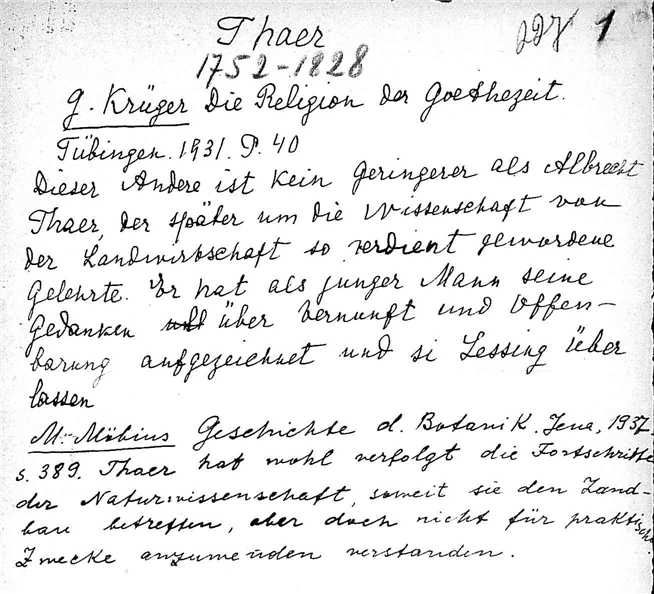 Thaer 1
1752-1828
G. Krüger Die Religion der Goethezeit.
Tübingen. 1931. P. 40
Dieser Andere ist kein Geringerer als Albrecht
Thaer, der später um die Wissenschaft von
der Landwirtschaft so verdient gewordene
Gelehrte. Er hat als junger Mann seine
Gedanken über Vernunft und Offen-
barung aufgezeichnet und si Lessing über
lassen
M. Möbius Geschichte d. Botanik. Jena, 1937.
s. 389. Thaer hat wohl verfolgt die Fortschritte
der Naturwissenschaft, soweit sie den Land-
bau betreffen, aber doch nicht für praktische
Zwecke anzuwenden verstanden.